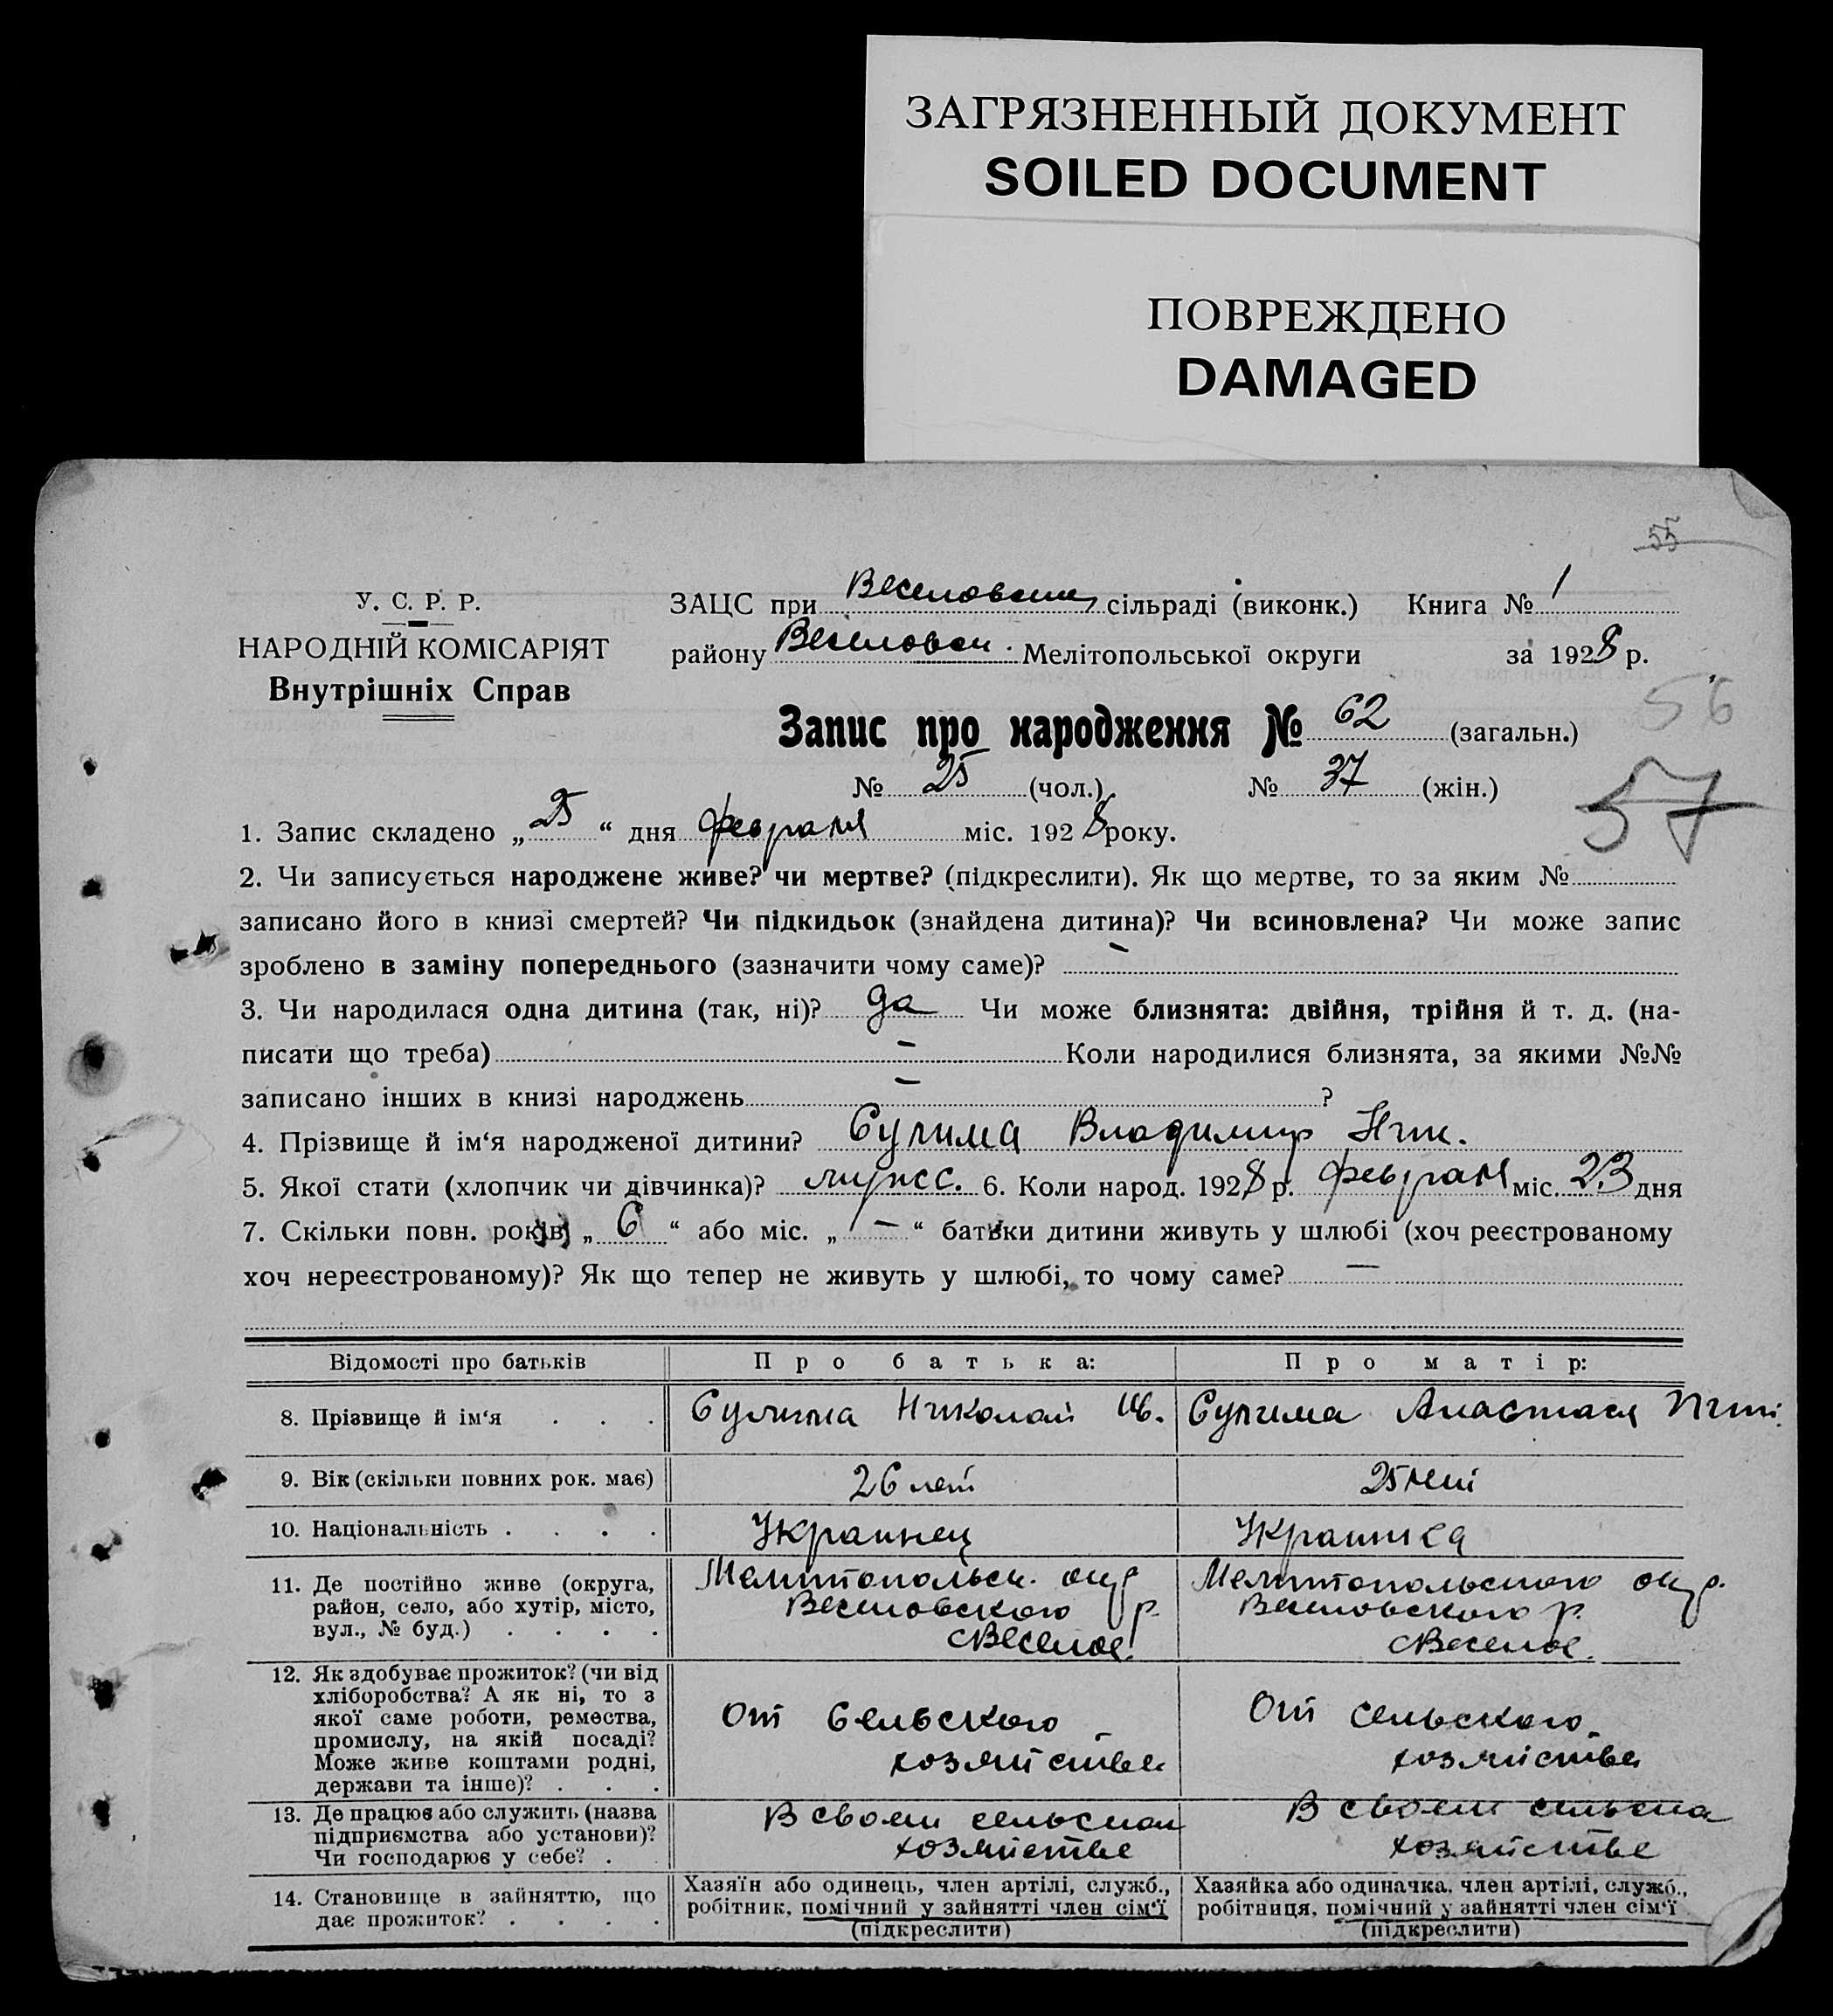 ЗАГРЯЗНЕННЫЙ ДОКУМЕНТ
SOILED DOCUMENT
ПОВРЕЖДЕНО
DAMAGED
55
У. С. Р. Р.
НАРОДНІЙ КОМІСАРІЯТ
Внутрішніх Справ
ЗАЦС при сільраді (виконк.) Книга № 1
району Веселовск. Мелітопольської округи за 1928 р.
56
Запис про народження № 62 (загальн.)
№ 25 (чол.) № 37 (жін.)
57
1. Запис складено „25“ дня февраля міс. 1928 року.
2. Чи записується народжене живе? чи мертве? (підкреслити). Як що мертве, то за яким №
записано його в книзі смертей? Чи підкидьок (знайдена дитина)? Чи всиновлена? Чи може запис
зроблено в заміну попереднього (зазначити чому саме)? –
3. Чи народилася одна дитина (так, ні)? да Чи може близнята: двійня, трійня й т. д. (на-
писати що треба) – Коли народилися близнята, за якими №№
записано інших в книзі народжень – ?
4. Прізвище й ім‘я народженої дитини? Сулима Владимир Ник.
5. Якої стати (хлопчик чи дівчинка)? мужс. 6. Коли народ. 1928 р. февраля міс. 23 дня
7. Скільки повн. років „6“ або міс. „–“ батьки дитини живуть у шлюбі (хоч реєстрованому
хоч нереєстрованому)? Як що тепер не живуть у шлюбі, то чому саме? –
Відомості про батьків Про батька: Про матір:
8. Прізвище й ім‘я . . . Сулима Николай Ив. Сулима Анастасия
9. Вік (скільки повних рок. має) 26 лет 25 лет
10. Національність . . . . Украинец Украинка
11. Де постійно живе (округа, район, село, або хутір, місто, вул., № буд.) . . . .
Мелитопольск. окр Веселовского р. с Веселое.
Мелитопольского окр. Веселовского р. с Веселое.
12. Як здобуває прожиток? (чи від хліборобства? А як ні, то з якої саме роботи, ремества, промислу, на якій посаді? Може живе коштами родні, держави та інше)? . . .
От сельского хозяйства
От сельского хозяйства
13. Де працює або служить (назва підприємства або установи)? Чи господарює у себе? .
В своем сельском хозяйстве
В своем хозяйстве
14. Становище в зайняттю, що дає прожиток? . . . .
Хазяїн або одинець, член артілі, служб., робітник, помічний у зайнятті член сім‘ї (підкреслити)
Хазяйка або одиначка, член артілі, служб., робітниця, помічний у зайнятті член сім‘ї (підкреслити)